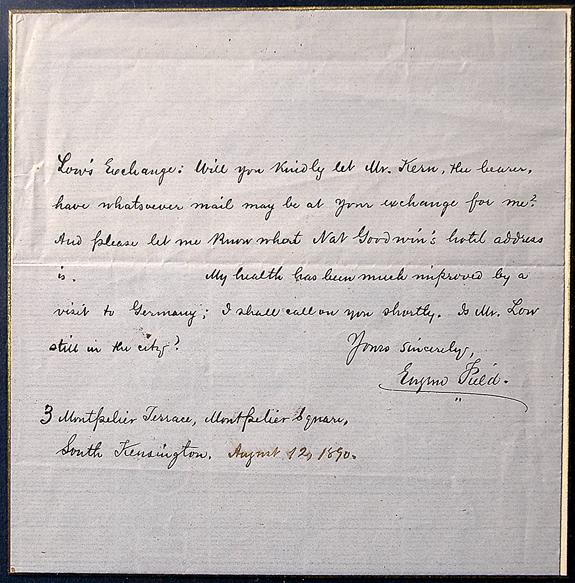 Low's Exchange: Will you kindly let Mr. Kern, the bearer,
have whatsoever mail may be at your exchange for me?
And please let me know what Nat Goodwin's hotel address
is. My health has been much improved by a
visit to Germany; I shall call on you shortly. Is Mr. Low
still in the city?
Yours sincerely,
Eugene Field.
3 Montpelier Terrace, Montpelier Square,
South Kensington. August 12, 1890.